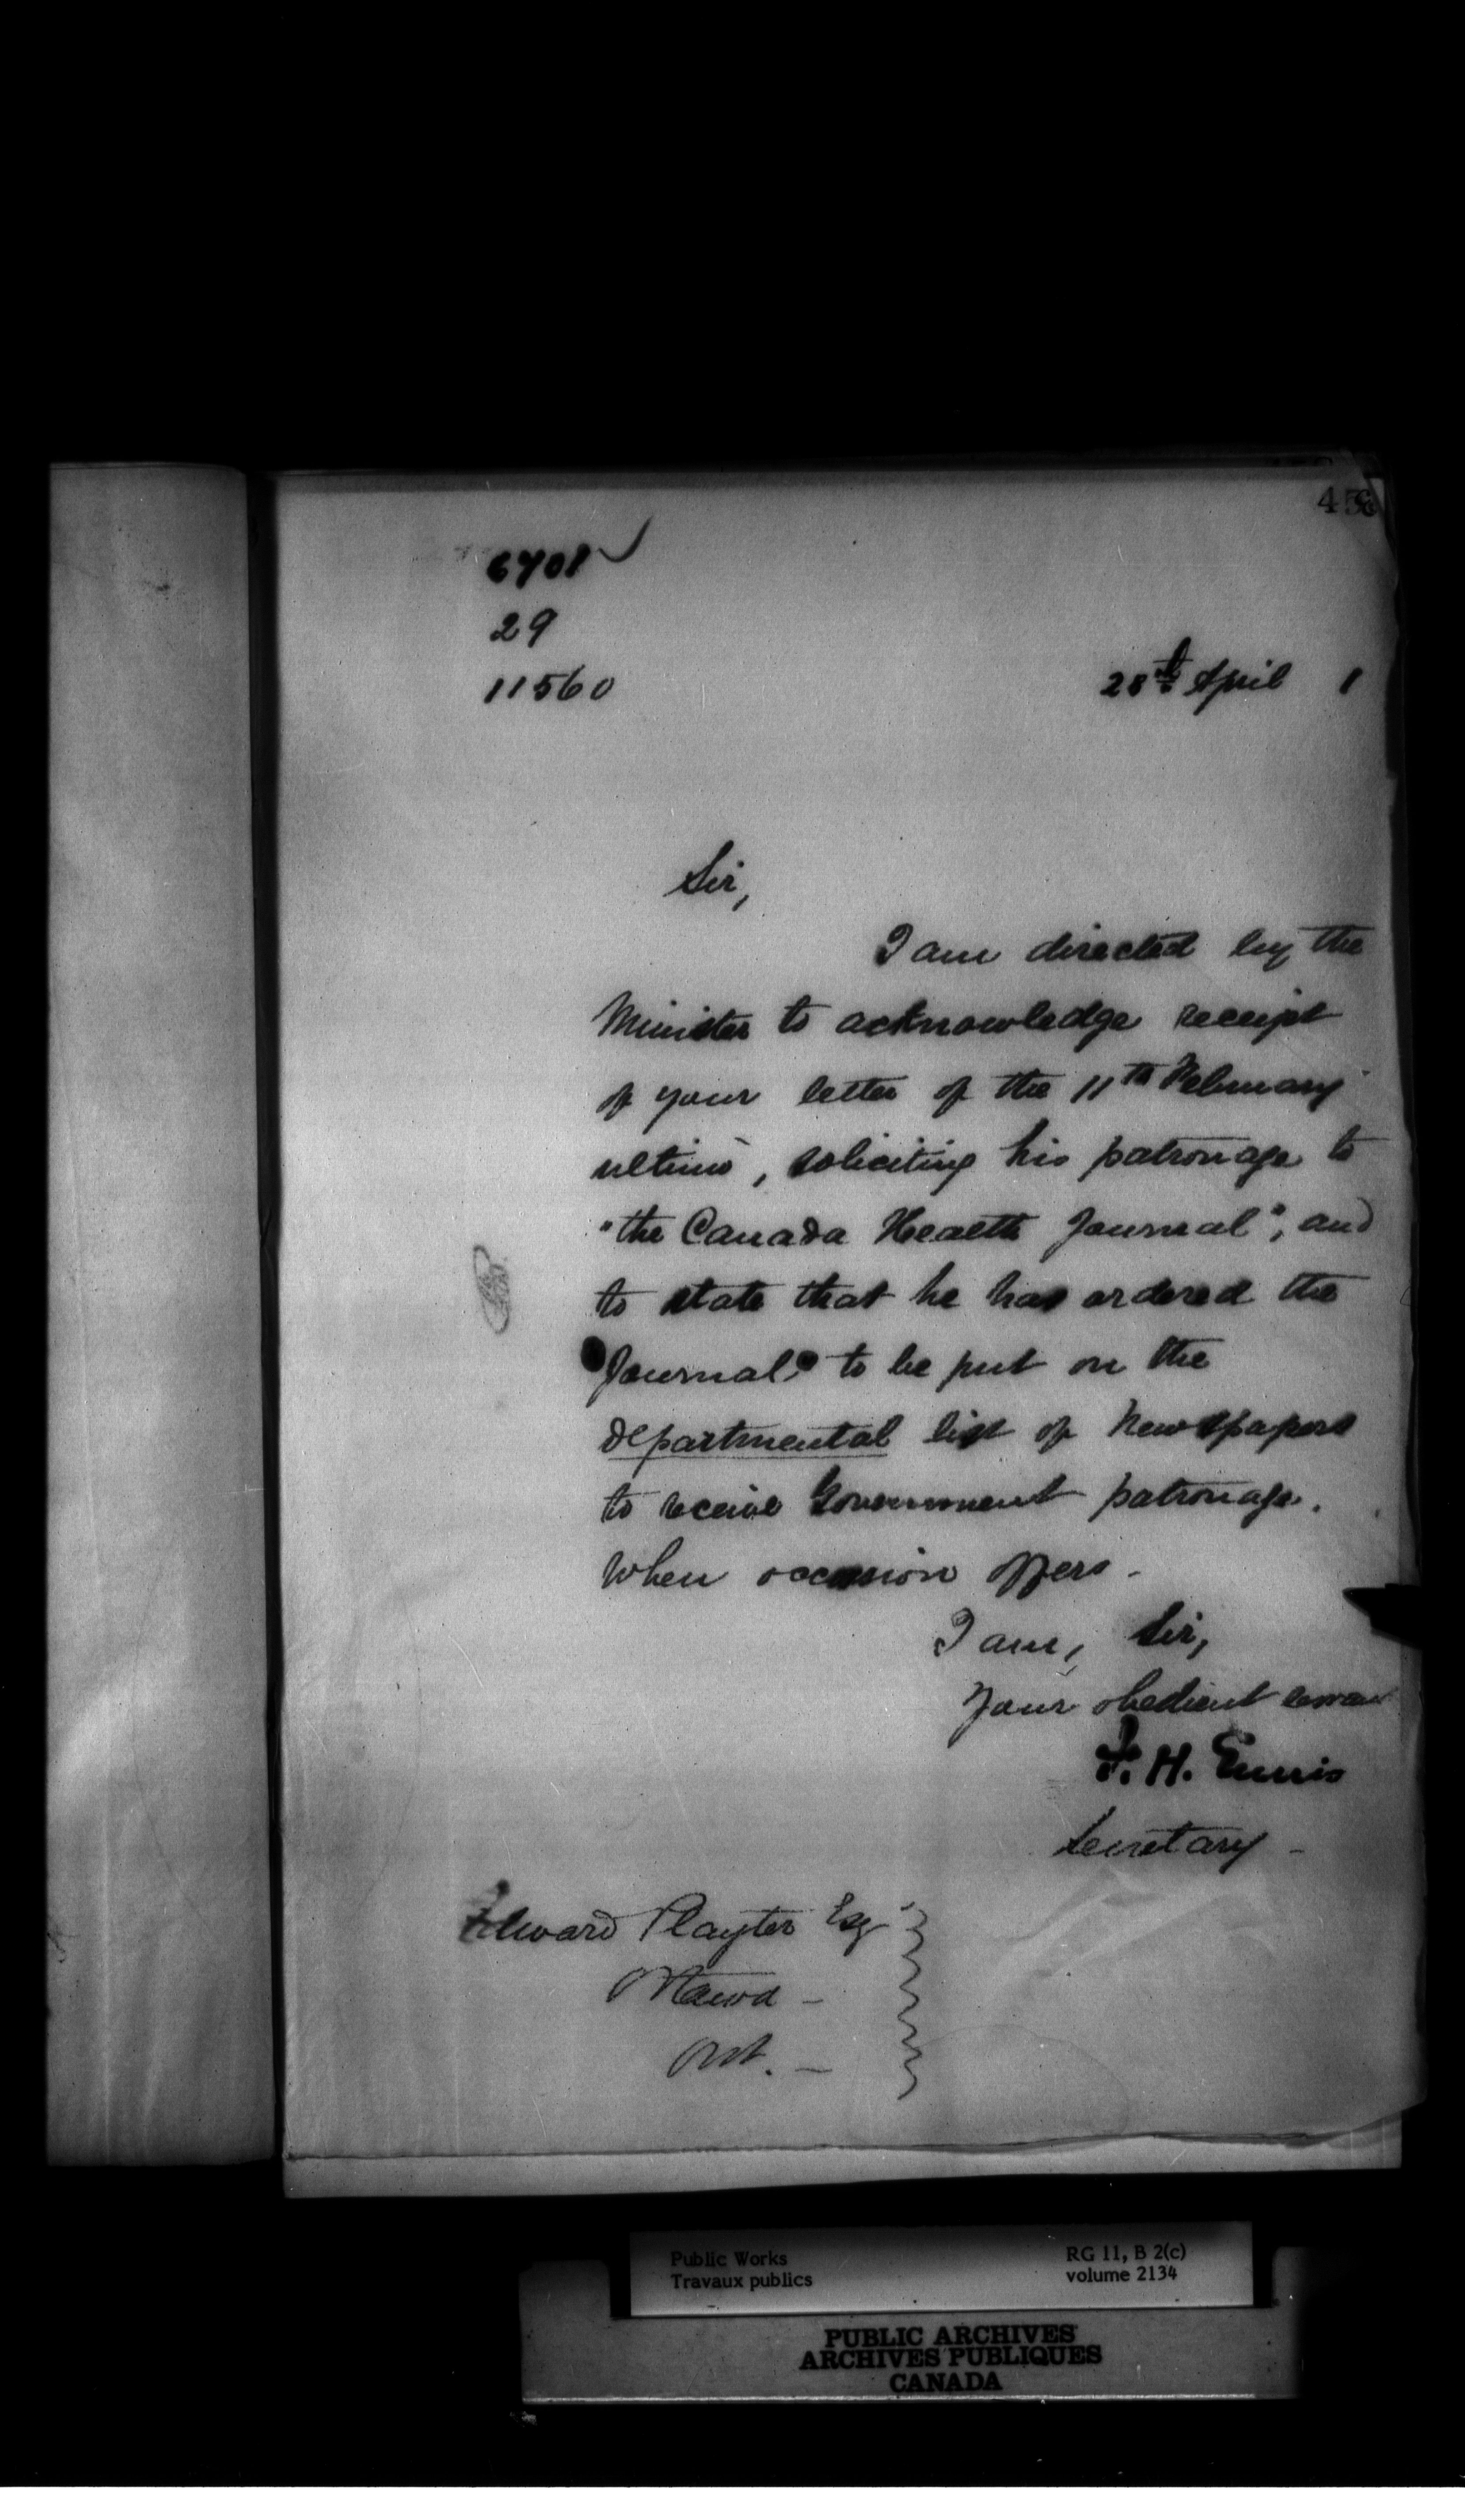 6701
29
11560
28th April 1
Sir,
I am directed by the
Minister to acknowledge receipt
of your letter of the 11th February
ultimo, soliciting his patronage to
"the Canada Health Journal", and
to state that he has ordered the
Journal to be put on the
departmental list of Newspapers
to receive Government patronage.
When occasion offers -
I am, Sir,
Your obedient servant
F. H. Ennis
Secretary -
Edward Playter Esq
Ottawa -
Ont. -
Public Works
Travaux publics
RG 11, B 2(c)
volume 2134
PUBLIC ARCHIVES
ARCHIVES PUBLIQUES
CANADA